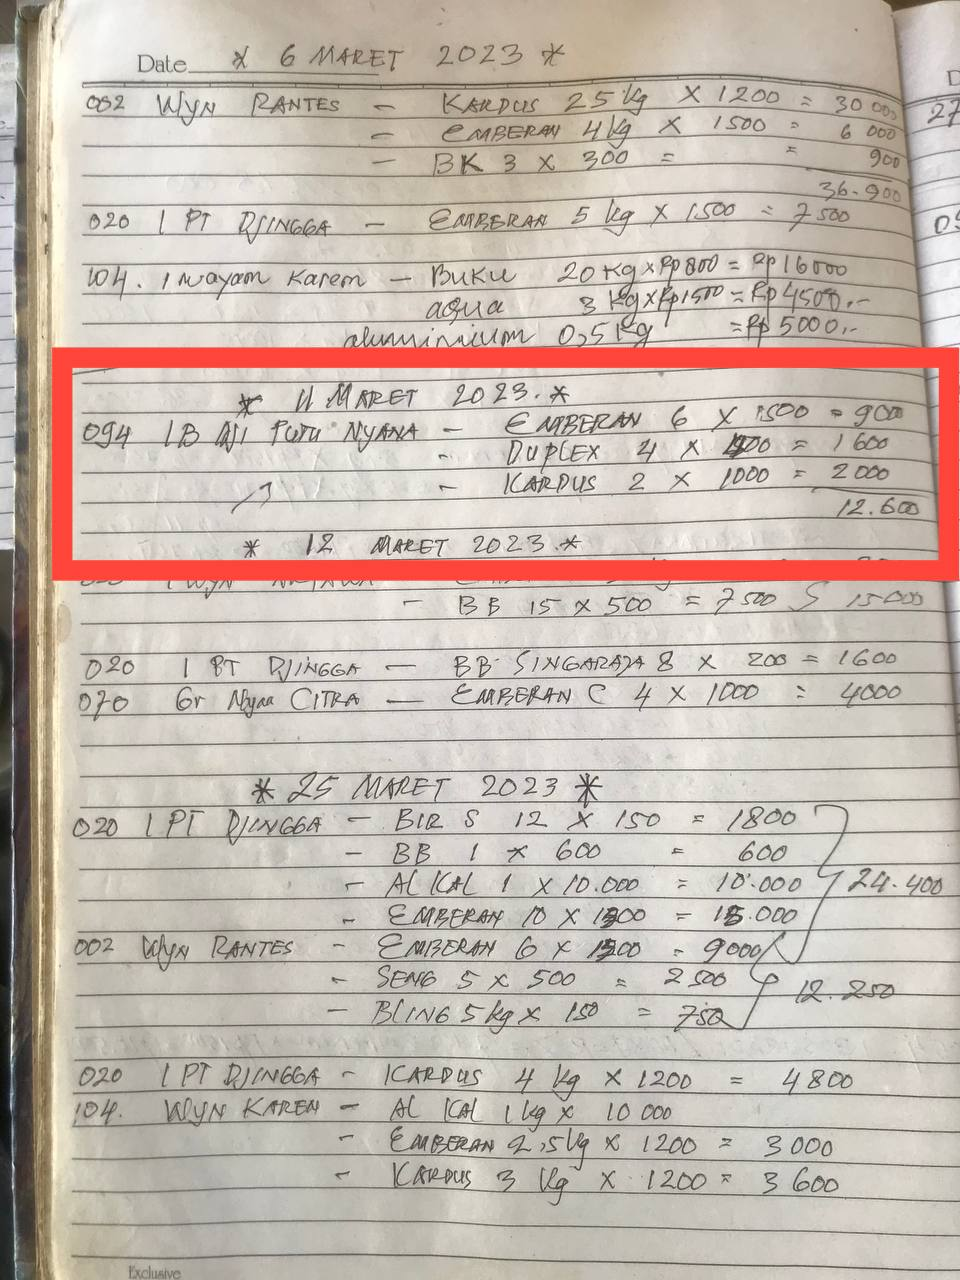 Date * 6 MARET 2023 *
002 WYN RANTES - KARDUS 25 kg X 1200 = 30 000
- EMBERAN 4 kg X 1500 = 6 000
- BK 3 X 300 = = 900
36.900
020 I PT DJINGGA - EMBERAN 5 kg X 1500 = 7 500
104. I wayam Karem - Buku 20 Kg x Rp 800 = Rp 16000
aqua 3 Kg x Rp 1500 = Rp 4500,--
aluminnium 0,5 Kg = Rp 5000,--
* 11 MARET 2023. *
094 IB AJI PUTU NYANA - EMBERAN 6 X 1500 = 900
- DUPLEX 4 X 400 = 1 600
- KARDUS 2 X 1000 = 2 000
12.600
* 12 MARET 2023. *
I WYN
- BB 15 X 500 = 7 500 15 000
020 I PT DJINGGA - BB SINGARAJA 8 X 200 = 1600
070 Gr Nyan CITRA - EMBERAN C 4 X 1000 = 4000
* 25 MARET 2023 *
020 I PT DJINGGA - BIR S 12 X 150 = 1800
- BB 1 X 600 = 600
- AL KAL 1 X 10.000 = 10.000 24.400
- EMBERAN 10 X 1500 = 15.000
002 WYN RANTES - EMBERAN 6 X 1500 = 9000
- SENG 5 X 500 = 2 500 12.250
- BLING 5 kg X 150 = 750
020 I PT DJINGGA - KARDUS 4 kg X 1200 = 4 800
104. WYN KAREN - AL KAL 1 kg X 10 000
- EMBERAN 2,5 kg X 1200 = 3 000
- KARDUS 3 kg X 1200 = 3 600
Exclusive
27